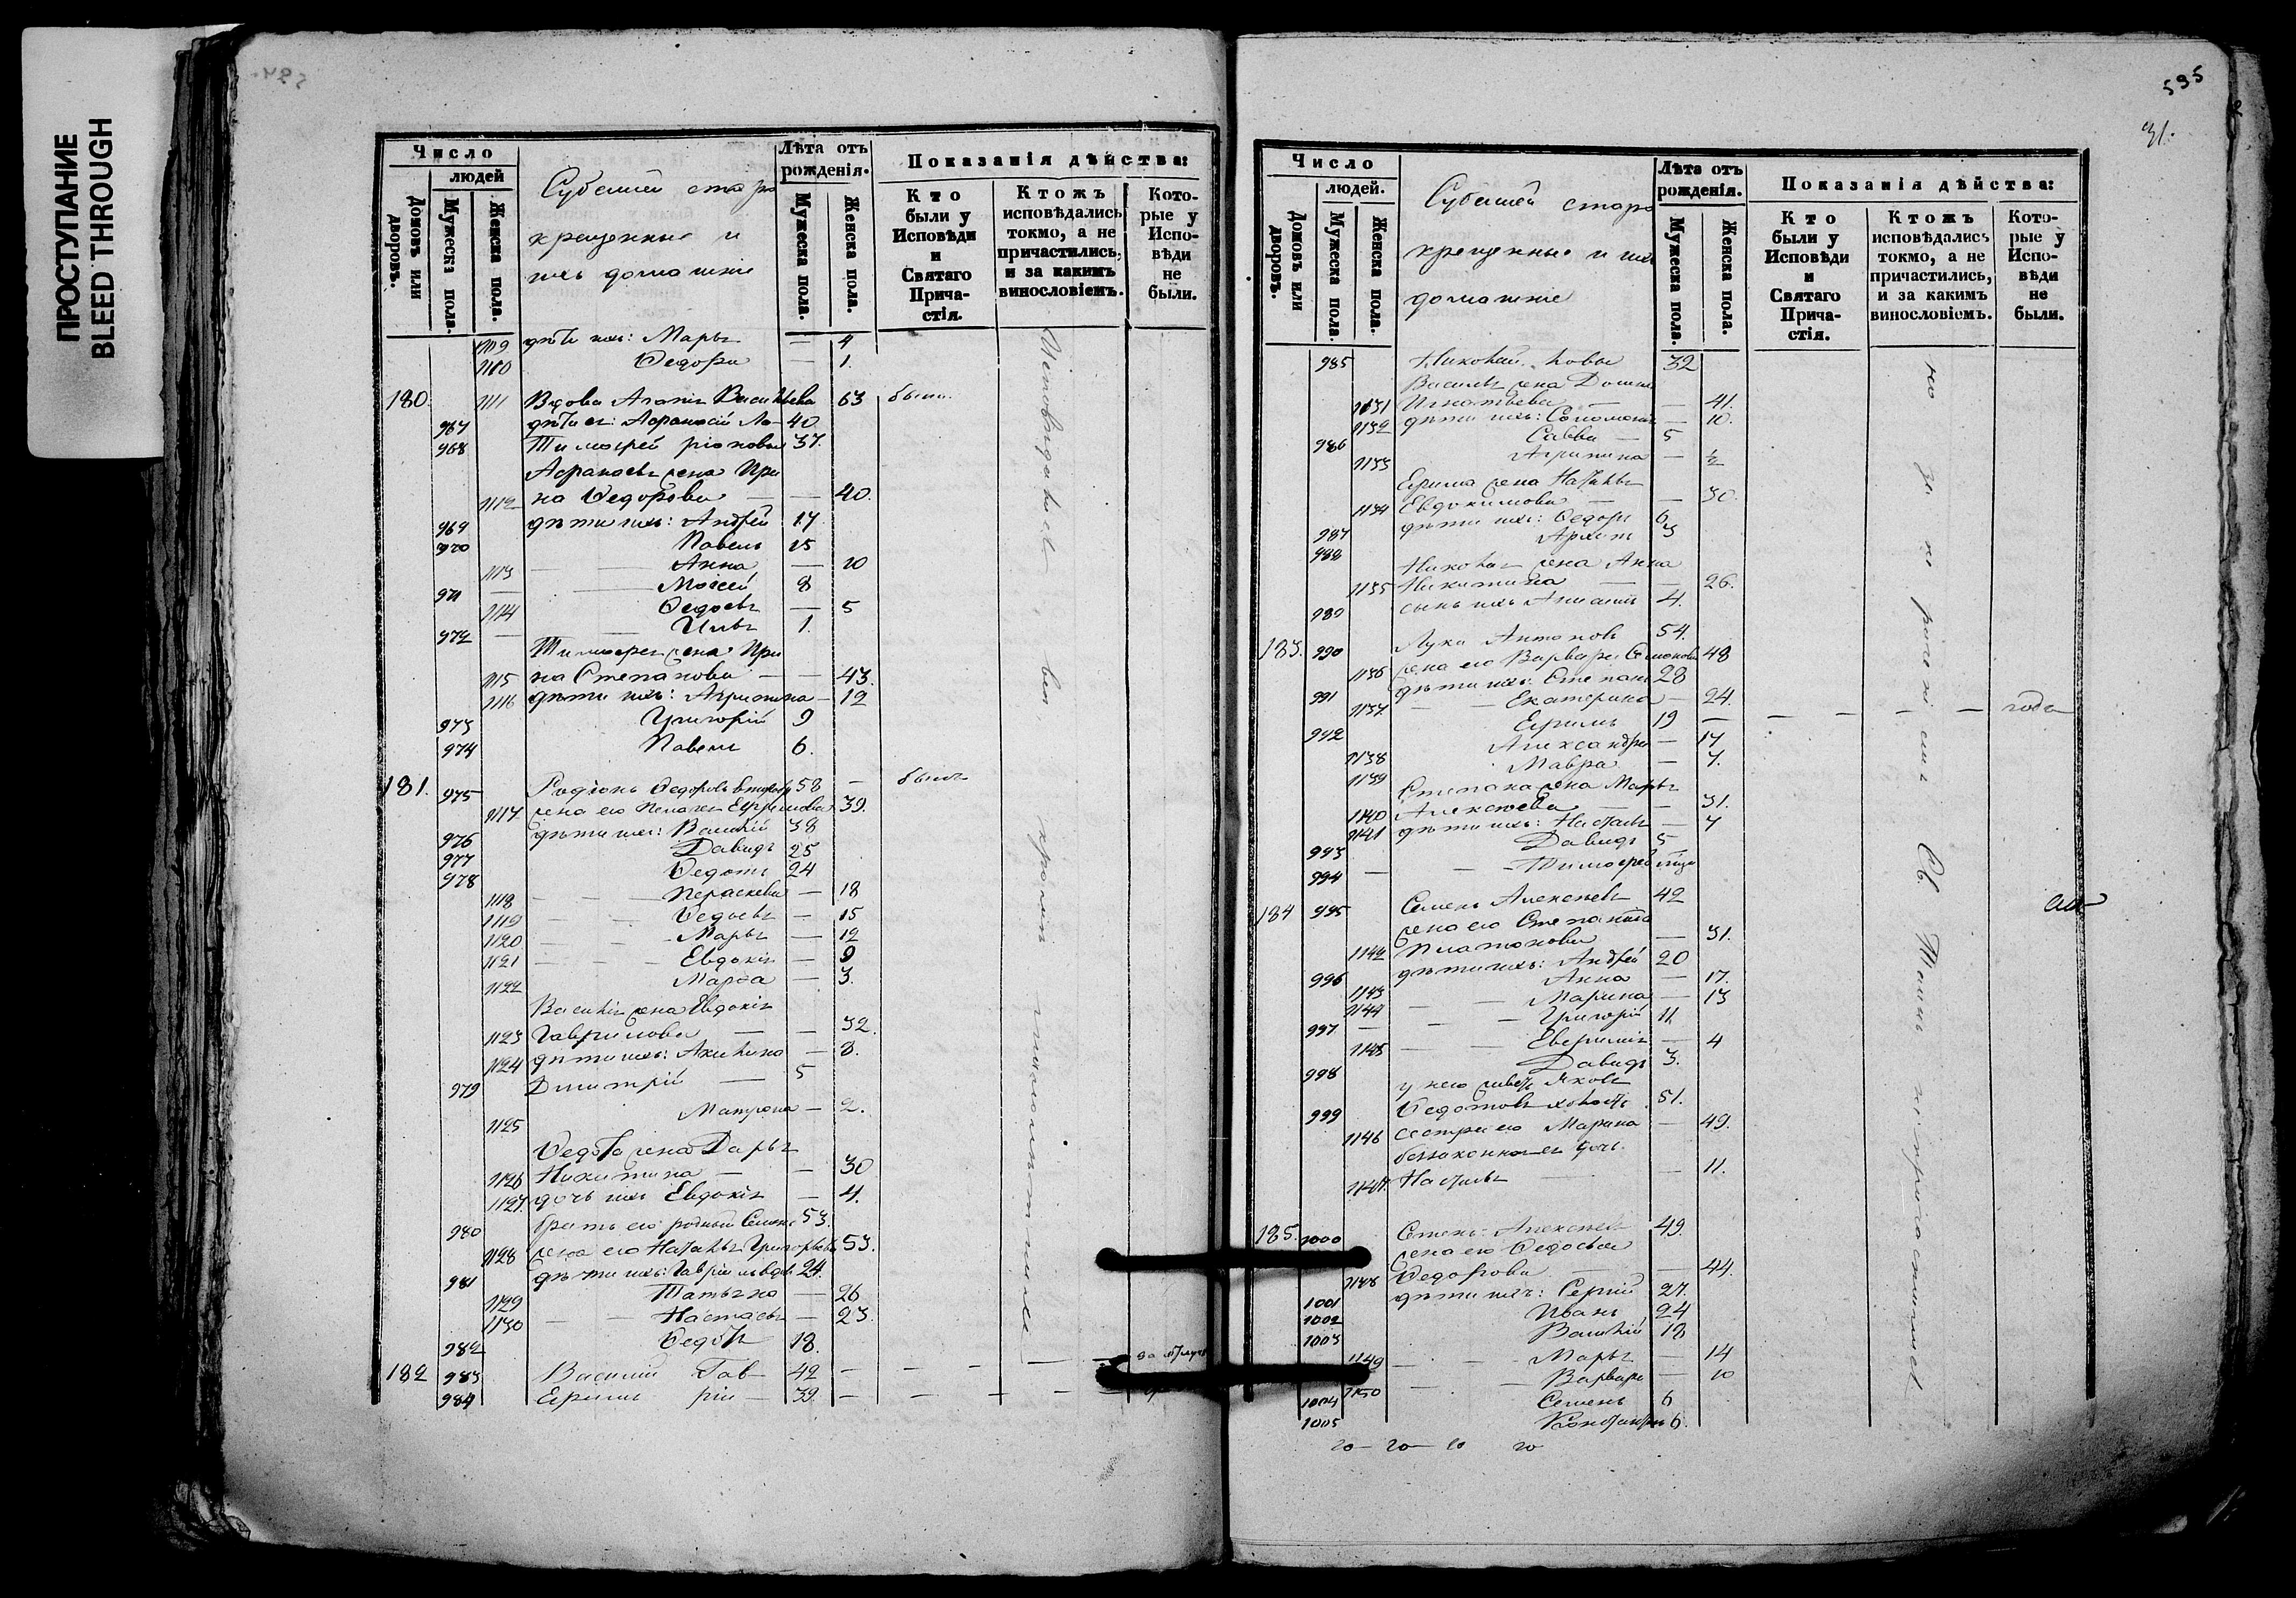 ПРОСТУПАНИЕ
BLEED THROUGH
Число
людей
Домовъ или дворовъ.
Мужеска пола.
Женска пола.
крещенные и
ихъ домашнiе
Лѣта отъ рожденія.
Мужеска пола.
Женска пола.
Показанія дѣйства:
Кто были у Исповѣди и Святаго Прича-стія.
Ктожъ исповѣдались токмо, а не причастились, и за какимъ винословіемъ.
Кото-рые у Испо-вѣди не были.
1109 дѣти ихъ: Марья — 4
1110 Ѳедора — 1.
180. 1111 Вдова Агаѳiя Васильева 63 были
967 дѣти ея: Аѳанасiй 40
968 Тимоѳей 37.
Аѳанасья жена Ири
1112 на Ѳедорова — — 40.
969 дѣти ихъ: Андрей 17
970 Павелъ 15
1113 — — Анна — 10
971 — Моисей 8
1114 Ѳедосья — 5
972 — — Илья 1.
Тимоѳея жена Ири
1115 на Степанова — — 43.
1116 дѣти ихъ: Агрипина — 12
973 Григорiй 9
974 Павелъ 6.
181. 975 Родiонъ Ѳедоровъ 58 — были
1117 жена его Пелагея Ефримова 39.
976 дѣти ихъ: Василiй 38
977 Давидъ 25
978 Ѳедотъ 24
1118 — — — Параскева — 18
1119 — — Ѳедосья — 15
1120 — — Марья — 12
1121 — — — Евдокiя — 9
1122 Марѳа — 3.
Василiя жена Евдокiя
1123 Гаврилова — — 32.
1124 дѣти ихъ: Акилина — 8.
979 Димитрiй — 5
1125 Матрона — 2.
Ѳедота жена Дарья
1126 Никитина — — 30
1127 дочь ихъ Евдокiя — 4.
980 братъ его родный Семенъ 53.
1128 жена его Наталья Григорьева 53.
981 дѣти ихъ: Гаврiилъ 24.
1129 Татьяна — 26
1130 — — Настасья — 23.
982 Ѳедотъ 18.
182 983 Василiй Гав- 42 — — — — —
984 Ефимъ рiи- 39. — — — — —
Исповѣдались всѣ, кромѣ
595
31.
Число
людей.
Домовъ или дворовъ.
Мужеска пола.
Женска пола.
крещенные и ихъ
домашнiе
Лѣта отъ рожденія.
Мужеска пола.
Женска пола.
Показанія дѣйства:
Кто были у Исповѣди и Святаго Прича-стія.
Ктожъ исповѣдались токмо, а не причастились, и за какимъ винословіемъ.
Кото-рые у Испо-вѣди не были.
985 Николай 32
Василья жена
1131 Игнатьева — — 41.
1132 дѣти ихъ: Соломонiя — 10.
986 Савва — 5
1133 Агрипина — ½
Ефима жена Наталья
1134 Евдокимова — — 30.
987 дѣти ихъ: Ѳедоръ 6
988 Архипъ 3
Николая жена Анна
1135 Никитина — — 26.
989 сынъ ихъ 4.
183. 990 Лука Антоновъ 54.
1136 жена его Варвара Семенова 48
991 дѣти ихъ: Степанъ 28
1137 — — Екатерина — 24.
992 Ефимъ 19 — — — — —
1138 Александра — 17
1139 Мавра — 7.
Степана жена Марья
1140 Алексѣева — — 31.
1141 дѣти ихъ: Настасья — 7
993 Давидъ 5
994 — — — Тимоѳей
184 995 Семенъ Алексѣевъ 42
жена его Степанида
1142 Платонова — 31.
996 дѣти ихъ: Андрей 20
1143 Анна — 17.
1144 — — Марина — 13
997 — — — Григорiй 11
1145 — — Евфимiя — 4
998 Давидъ 3.
у него живетъ Яковъ
999 Ѳедотовъ холостъ 51.
1146 сестра его Марина — 49.
беззаконная ея дочь
1147 Настасья — — 11.
185. 1000 Семенъ Алексѣевъ 49.
жена его Ѳедосья
1148 Ѳедорова — — 44.
1001 дѣти ихъ: Сергiй 27.
1002 Иванъ 24
1003 Василiй 18
1149 — — — Марья — 14
1150 — — Варвара — 10
1004 Семенъ 6
1005 Константинъ 6.
Св. Таинъ не причастились